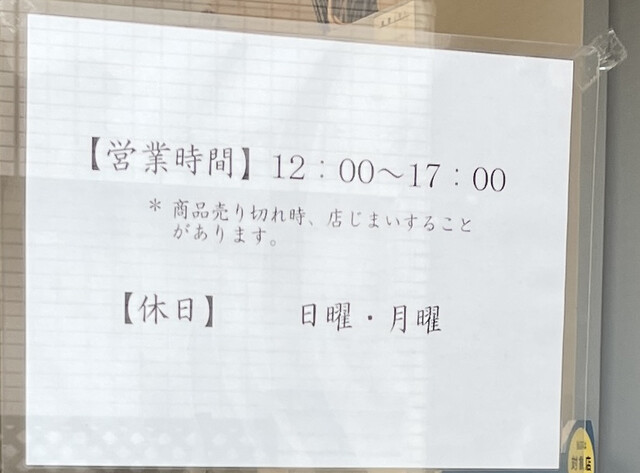 【営業時間】12：00～17：00
＊ 商品売り切れ時、店じまいすること
があります。
【休日】　　日曜・月曜